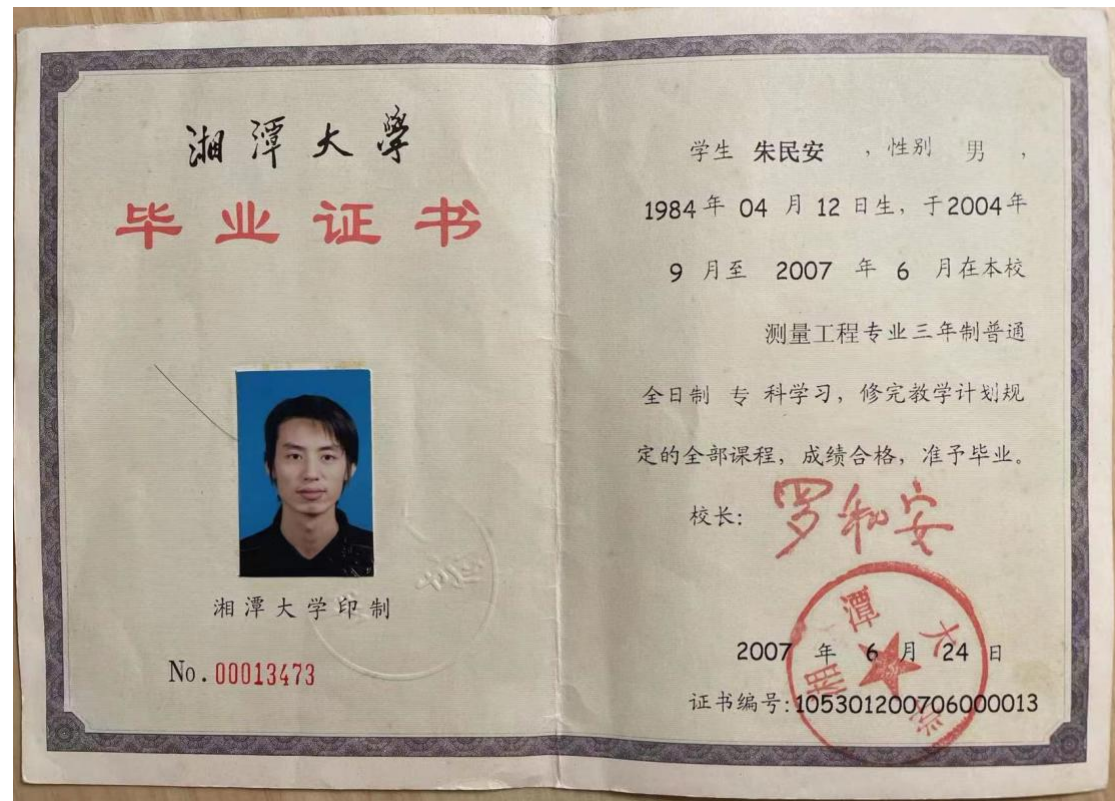 湘潭大學
毕业证书
湘潭大学印制
No.00013473
学生 朱民安 ，性别 男 ，
1984年 04 月 12 日生，于2004年
9 月至 2007 年 6 月在本校
测量工程专业三年制普通
全日制 专 科学习，修完教学计划规
定的全部课程，成绩合格，准予毕业。
校长：罗和安
湘潭大学
2007 年 6 月 24 日
证书编号:105301200706000013